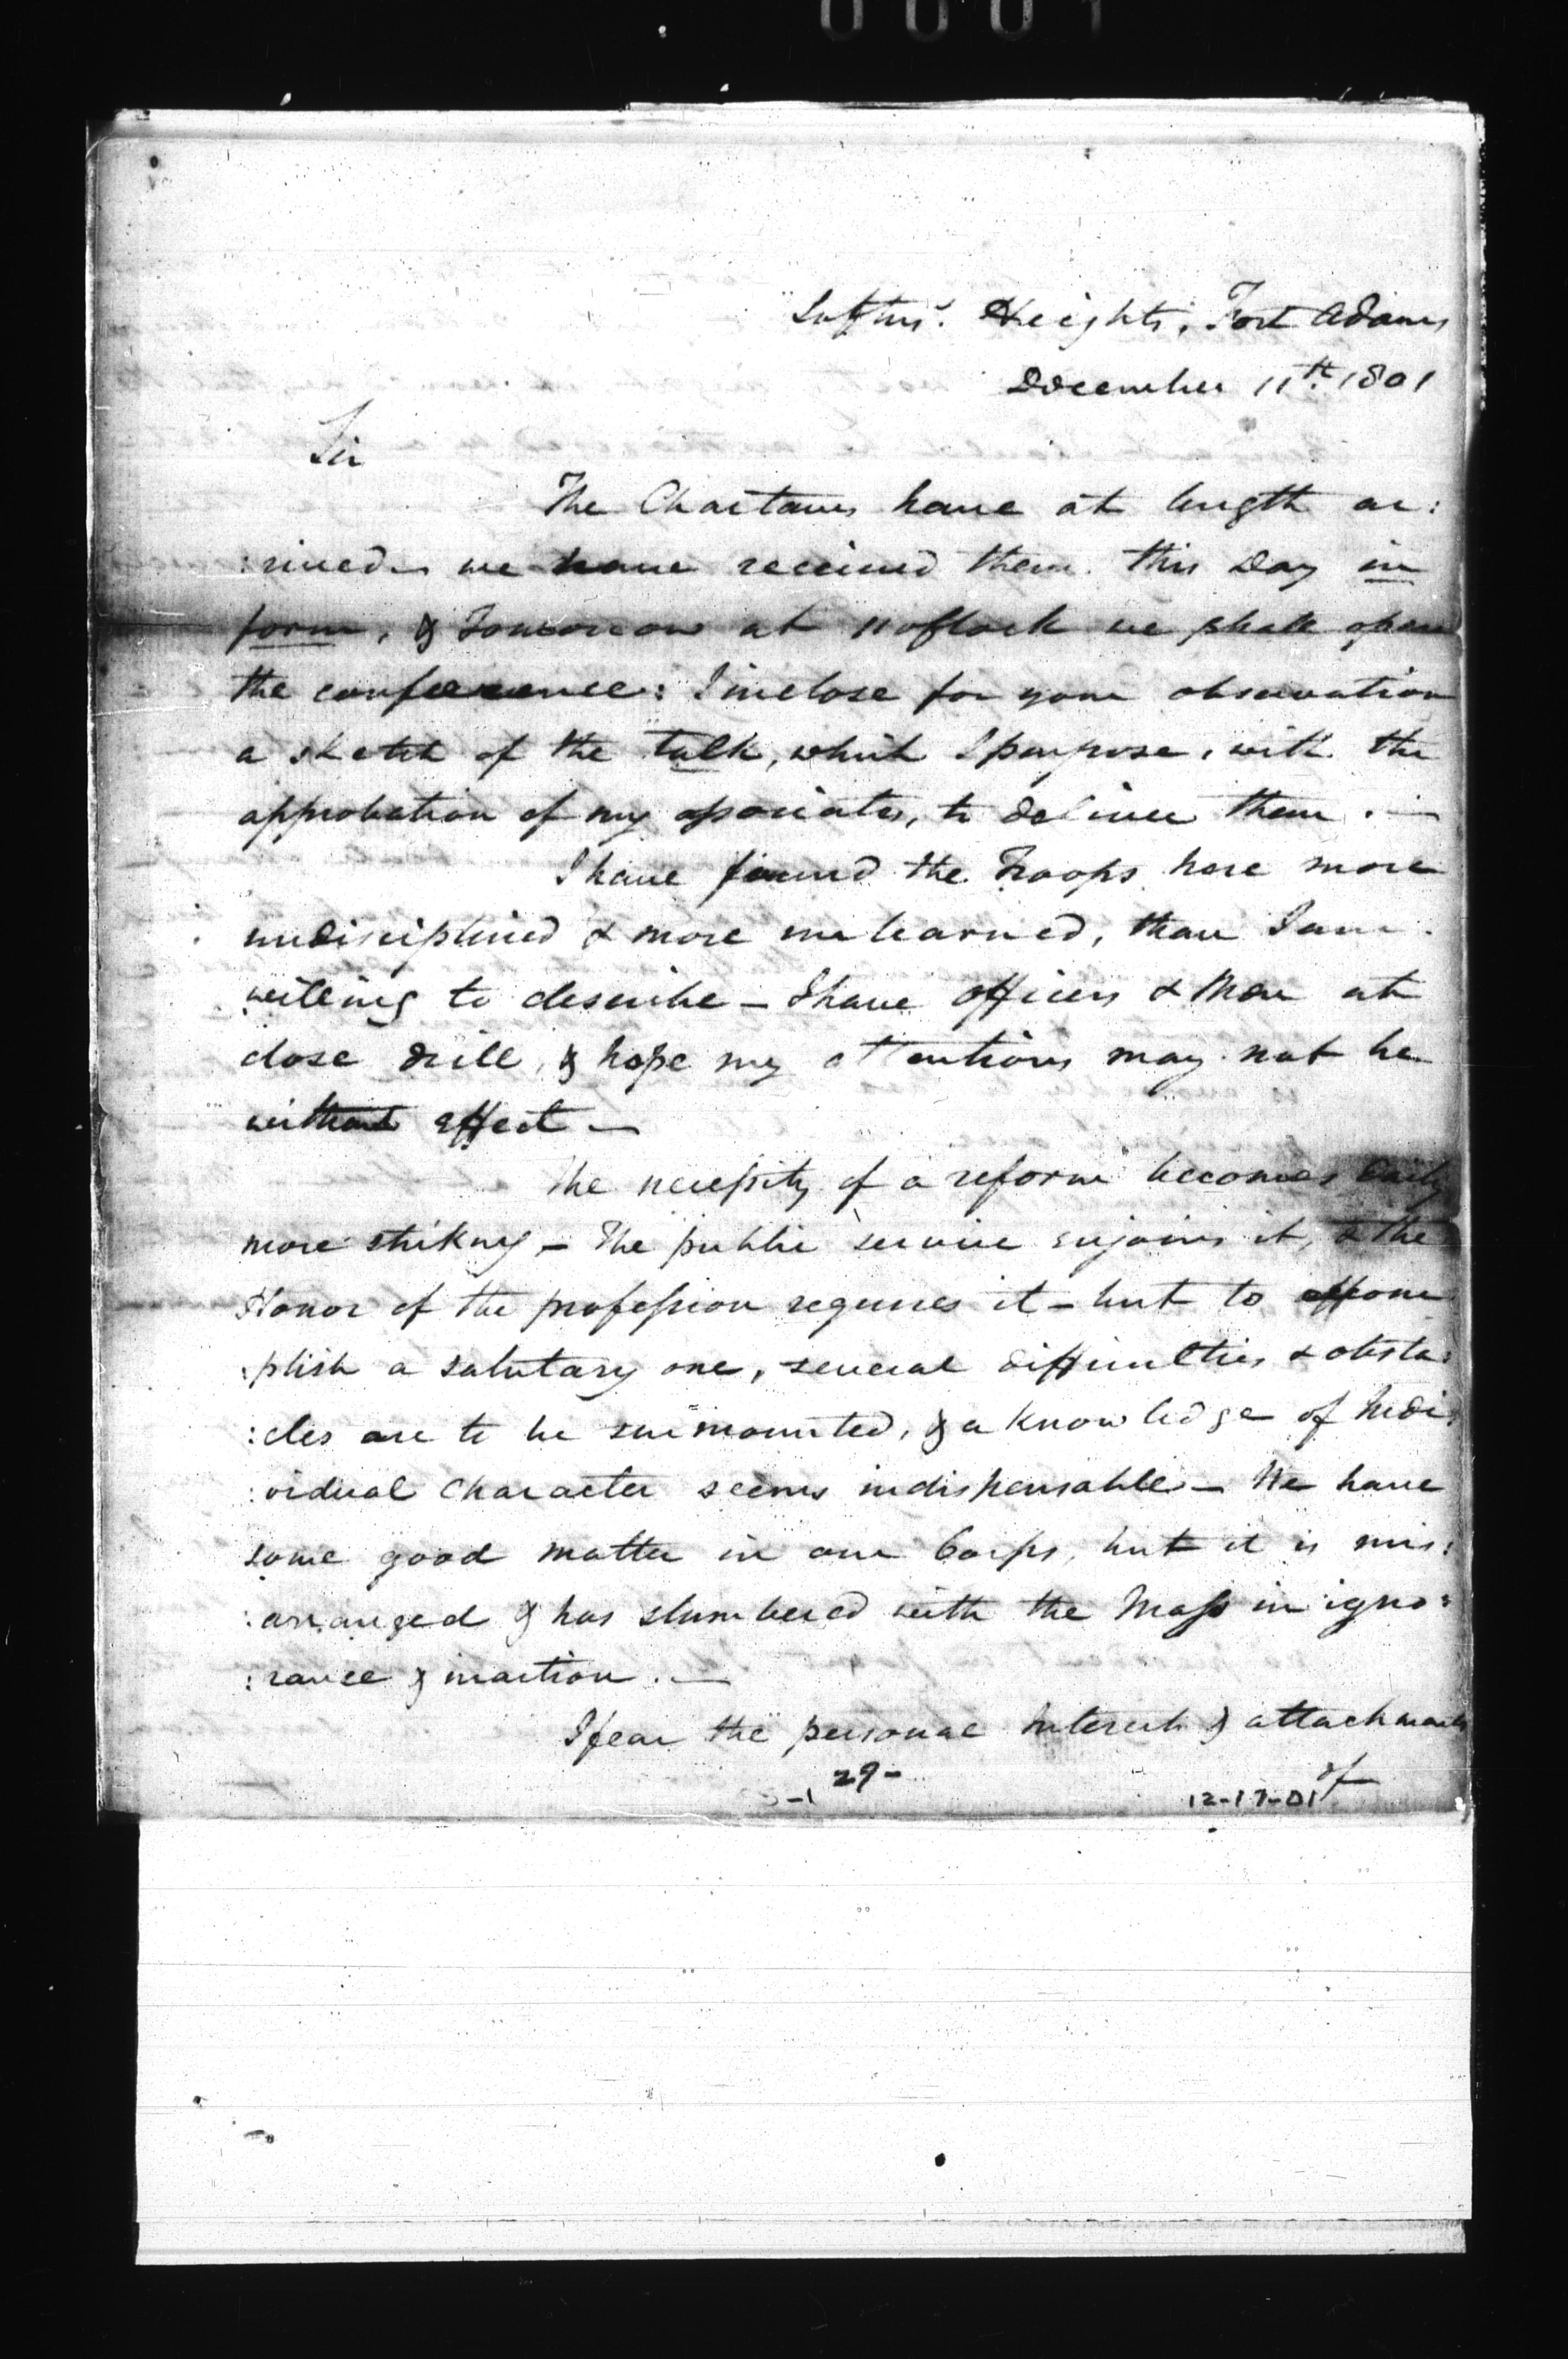 Loftus' Heights, Fort Adams
December 11th. 1801
Sir
The Chactaws have at length ar:
:rived – we have received them this Day in
form, & Tomorrow at 11 oClock we shall open
the conference: I inclose for your observation
a sketch of the talk, which I purpose, with the
approbation of my associates, to deliver them. —
I have found the Troops here more
undisciplined & more unlearned, than I am
willing to describe – I have officers & Men at
close drill, & hope my attentions may not be
without effect —
The necessity of a reform becomes daily
more strikng – The public service enjoins it, & the
Honor of the profession requires it – but to accom
:plish a salutary one, several difficulties & obsta:
:cles are to be surmounted, & a knowledge of Indi:
:vidual Character seems indispensable – We have
some good matter in our Corps, but it is mis:
:arranged & has slumbered with the Mass in igno:
:rance & inaction. —
I fear the personal Interests & attachments
of
29-
12-17-01